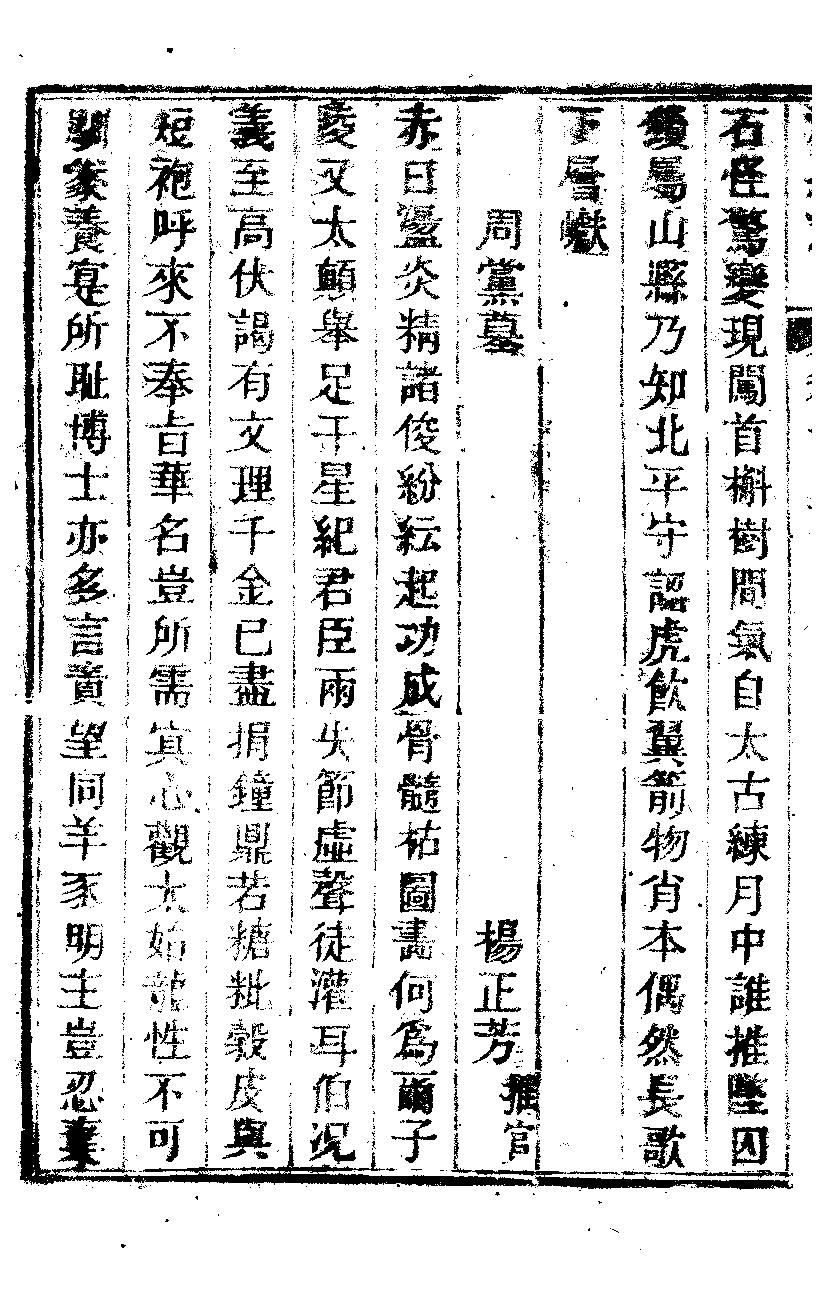 石怪驚變現闖首槲樹間氣自太古練月中誰推墜囚
鎖屬山縣乃知北平守認虎飲翼箭物肖本偶然長歌
下層巘
周黨墓 楊正芳推官
赤日盪炎精諸俊紛紜起功成骨髓枯圖畫何爲爾子
陵又太顛舉足干星紀君臣兩失節虛聲徒灌耳伯況
義至高伏謁有文理千金已盡捐鐘鼎若糖粃榖皮與
短袍呼來不奉旨華名豈所需寘心觀太始龍性不可
豢養寔所耻博士亦多言責望同羊豕明主豈忍棄